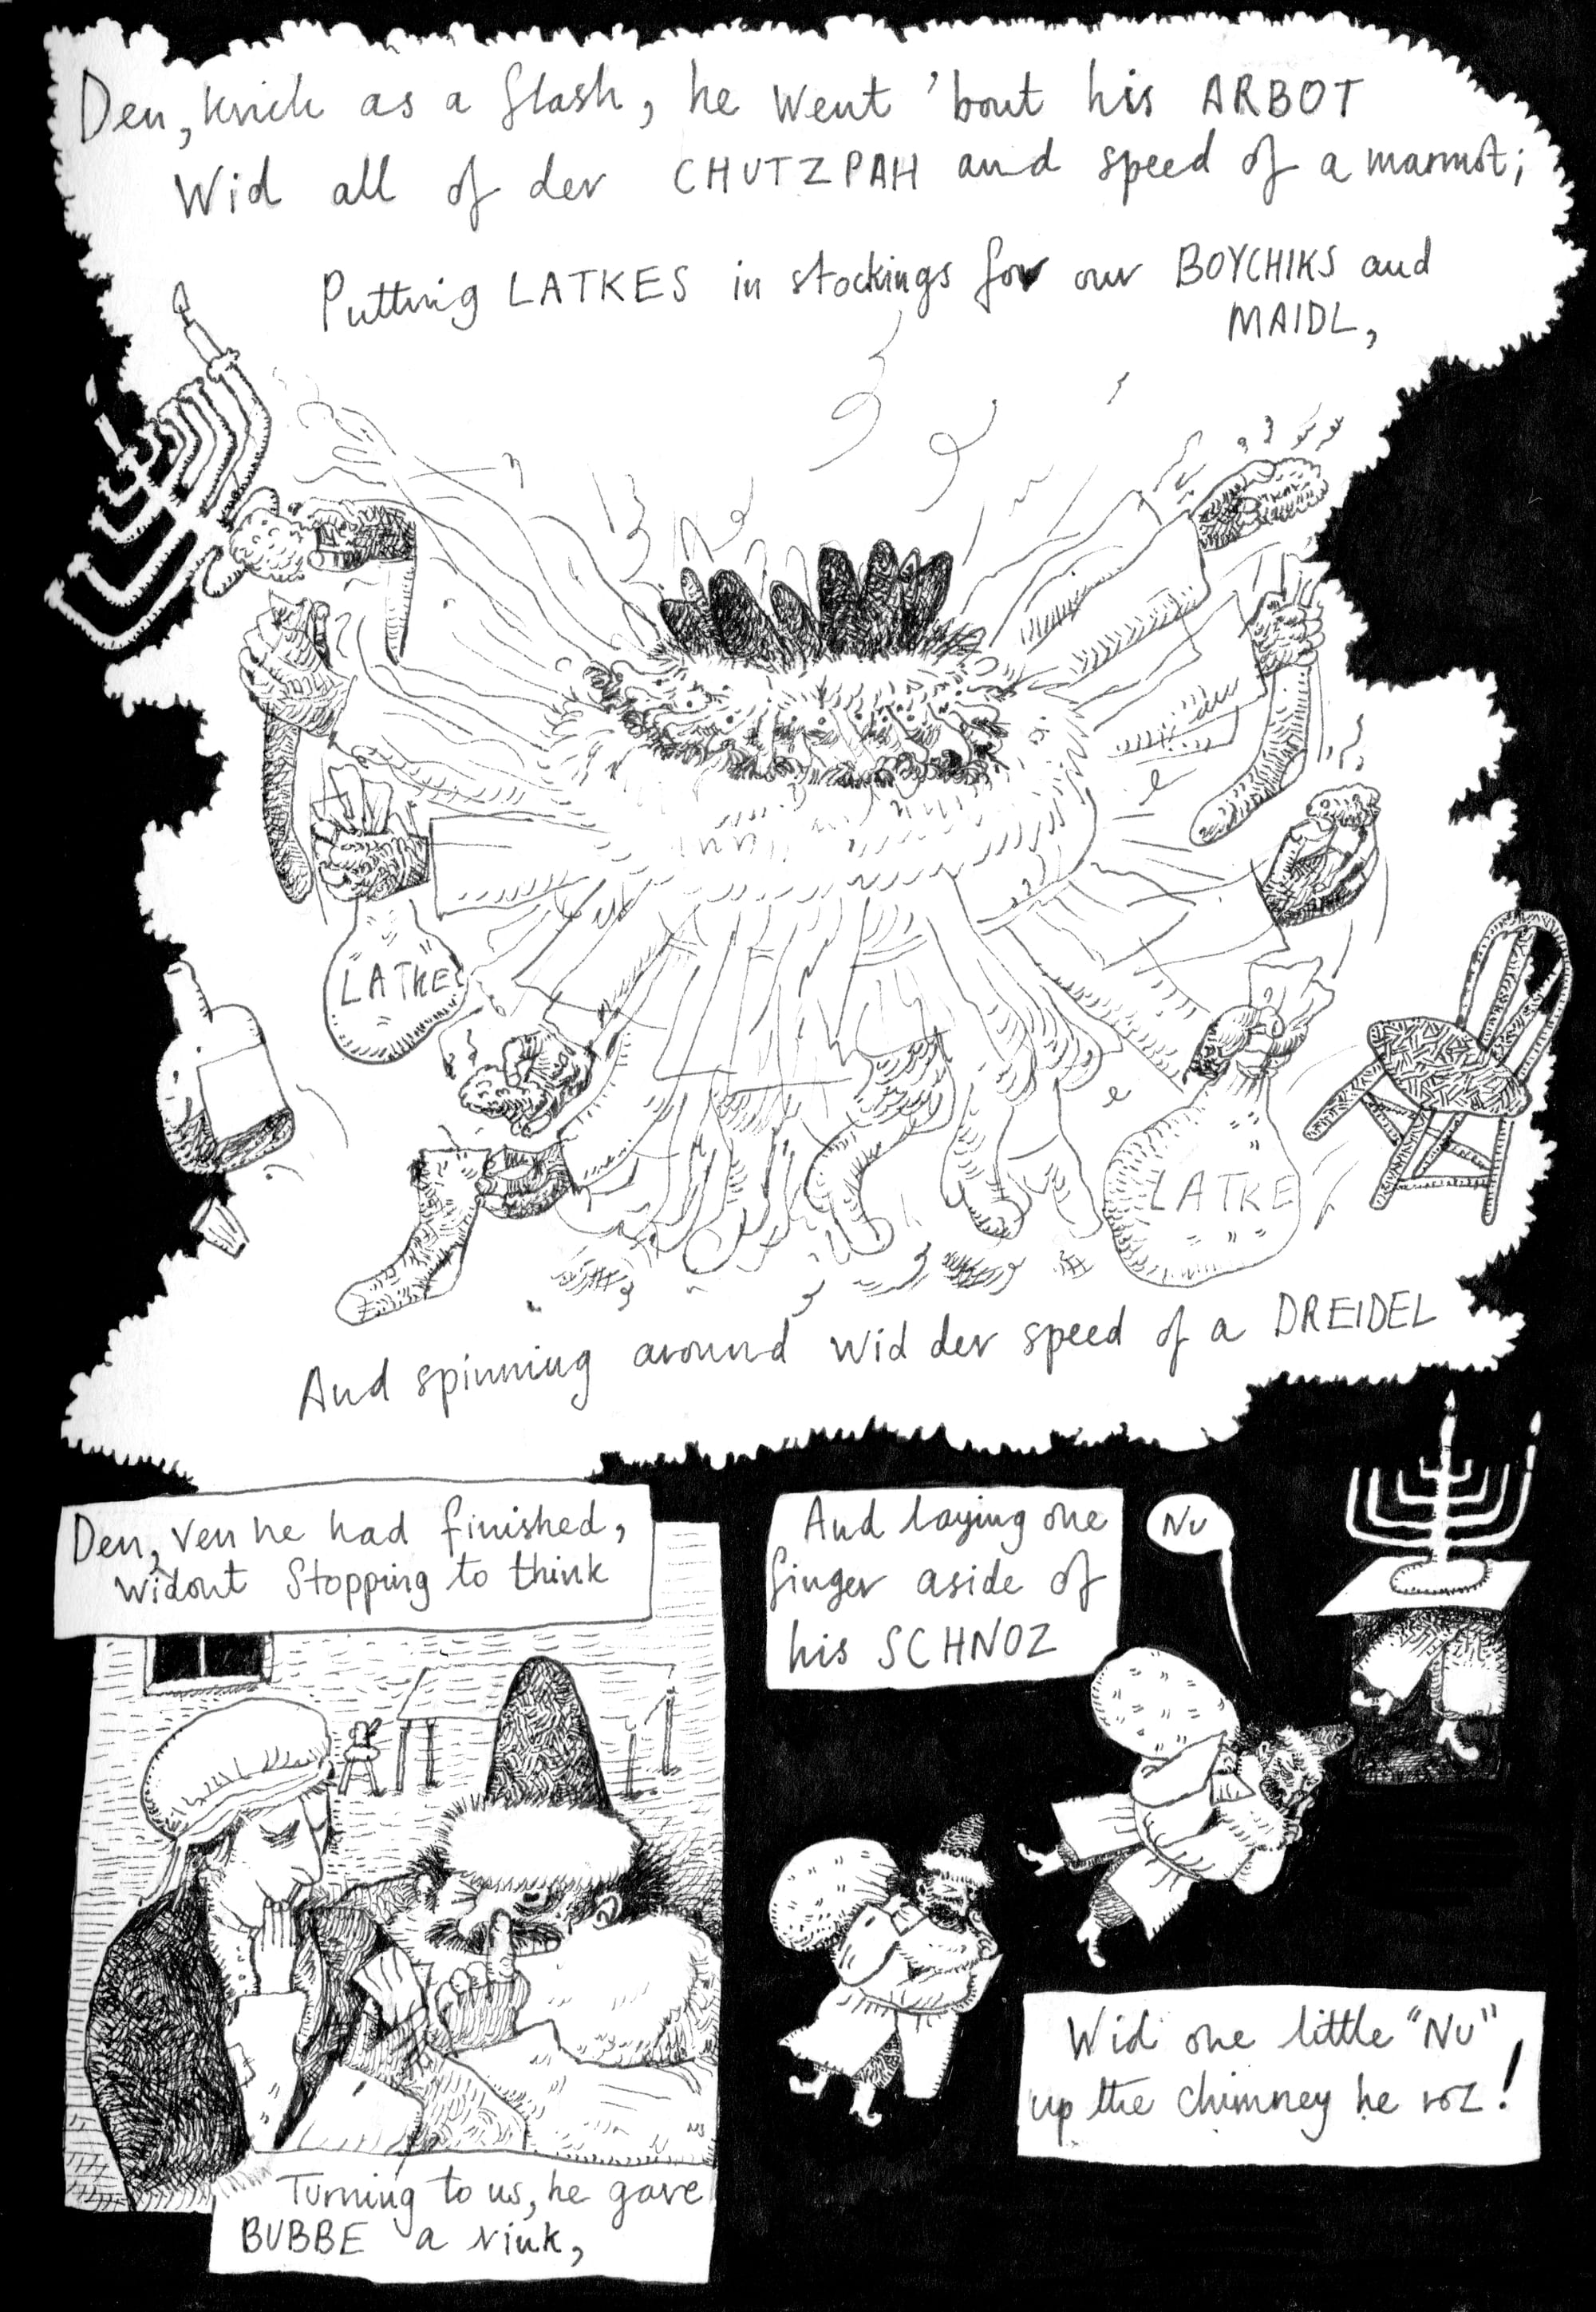 Den, kvick as a flash, he went 'bout his ARBOT
Wid all of der CHUTZPAH and speed of a marmot;
Putting LATKES in stockings for our BOYCHIKS and
MAIDL,
LATKE
LATKE
And spinning around wid der speed of a DREIDEL
Den, ven he had finished,
widout stopping to think
Turning to us, he gave
BUBBE a vink,
And laying one
finger aside of
his SCHNOZ
NU
Wid one little "NU"
up the chimney he roz!